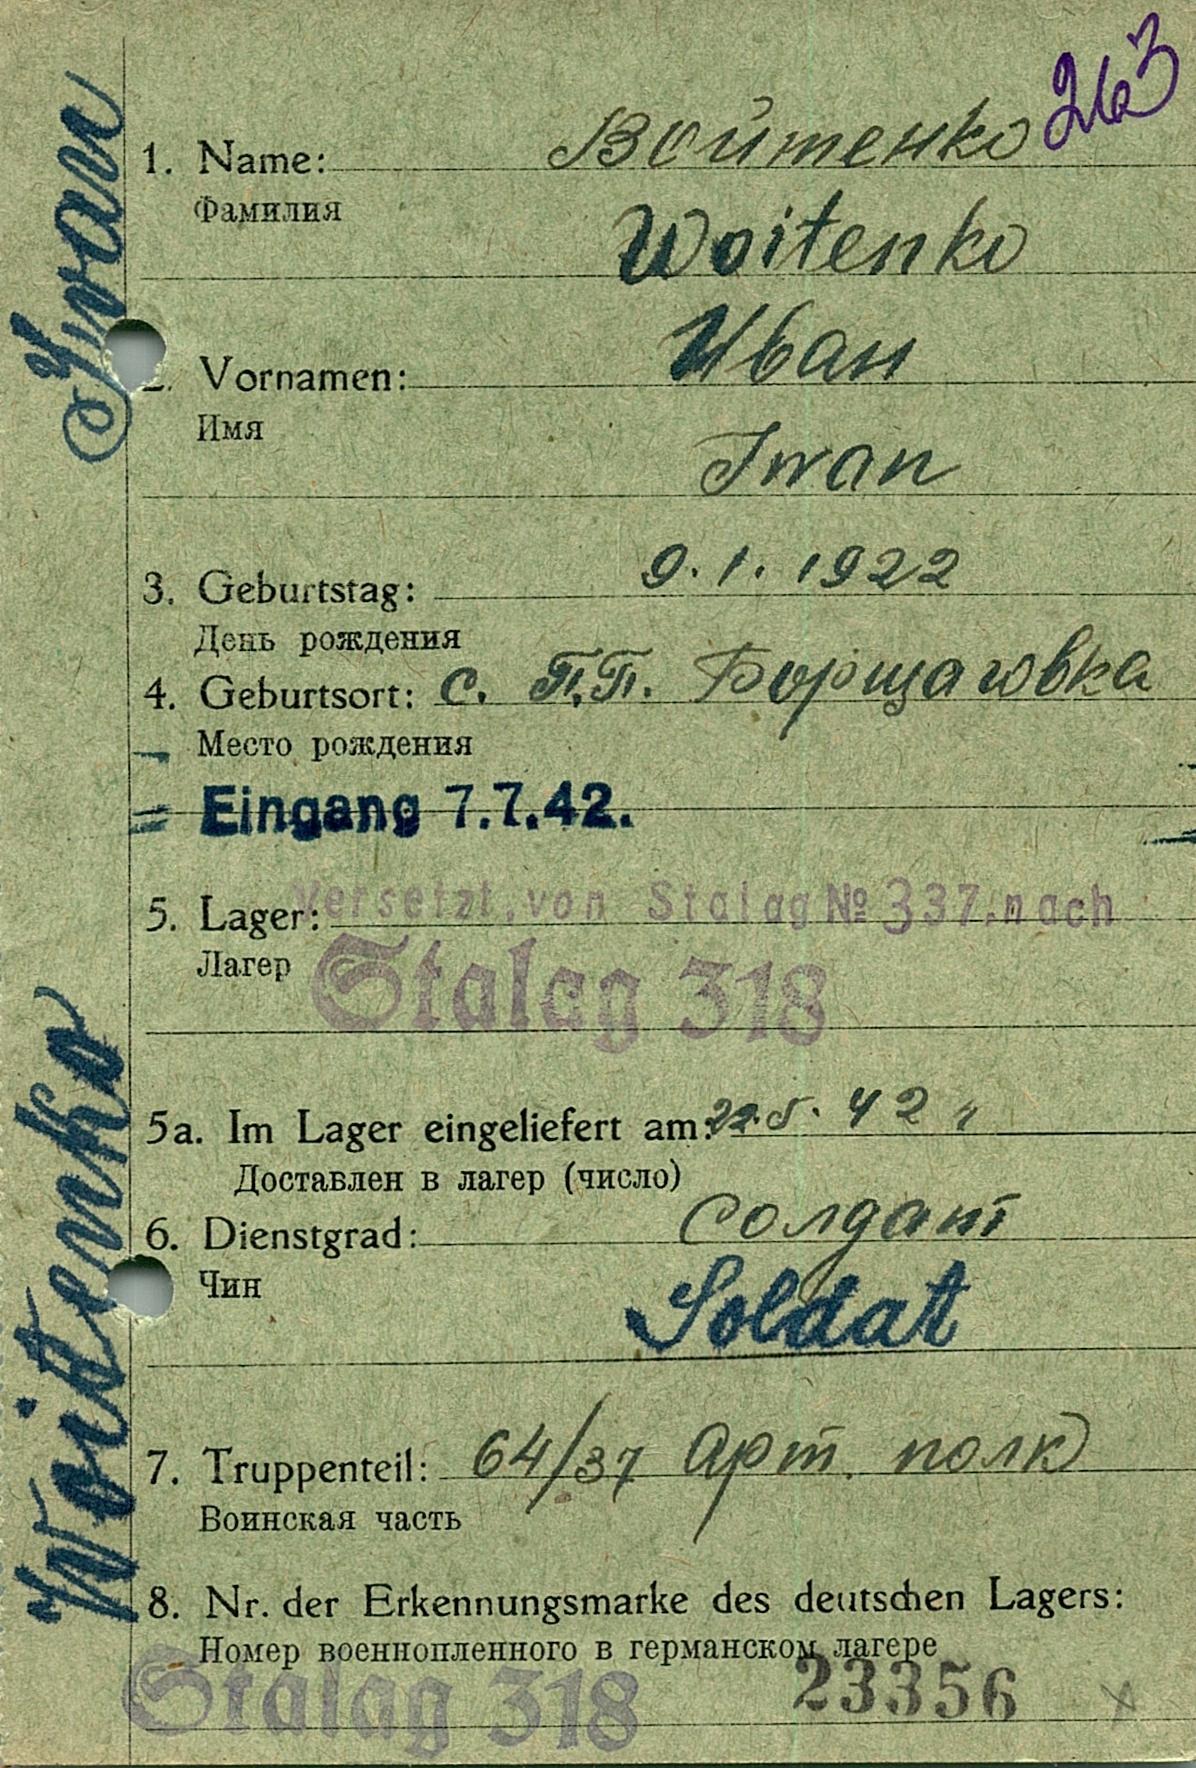 263
1. Name: Войтенко
Фамилия
Woitenko
2. Vornamen: Иван
Имя
Iwan
3. Geburtstag: 9.1.1922
День рождения
4. Geburtsort: с. П.П. Борщаговка
Место рождения
Eingang 7.7.42.
5. Lager: Versetzt, von Stalag № 337, nach
Лагер
Stalag 318
5a. Im Lager eingeliefert am: 22.5.42
Доставлен в лагер (число)
6. Dienstgrad: Солдат
Чин
Soldat
7. Truppenteil: 64/37 Арт. полк
Воинская часть
8. Nr. der Erkennungsmarke des deutschen Lagers:
Номер военнопленного в германском лагере
Stalag 318 23356
Woitenko Iwan